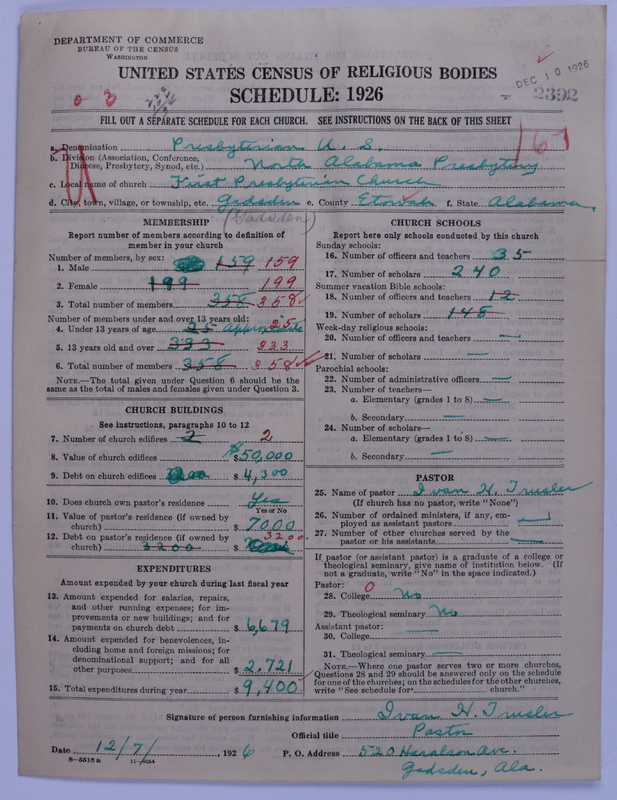 DEPARTMENT OF COMMERCE
BUREAU OF THE CENSUS
WASHINGTON
UNITED STATES CENSUS OF RELIGIOUS BODIES
DEC 10 1926
SCHEDULE: 1926
2392
FILL OUT A SEPARATE SCHEDULE FOR EACH CHURCH. SEE INSTRUCTIONS ON THE BACK OF THIS SHEET
a. Denomination Presbyterian U. S.
b. Division (Association, Conference,
Diocese, Presbytery, Synod, etc.) North Alabama Presbytery
c. Local name of church First Presbyterian Church
d. City, town, village, or township, etc. Gadsden e. County Etowah f. State Alabama
(Gadsden)
MEMBERSHIP
Report number of members according to definition of
member in your church
Number of members, by sex:
1. Male 159 159
2. Female 199 199
3. Total number of members 358 358
Number of members under and over 13 years old:
4. Under 13 years of age 25 Approximate 25
5. 13 years old and over 333 333
6. Total number of members 358 358
NOTE.—The total given under Question 6 should be
the same as the total of males and females given under Question 3.
CHURCH BUILDINGS
See instructions, paragraphs 10 to 12
7. Number of church edifices 2 2
8. Value of church edifices $50,000
9. Debt on church edifices $4,300
10. Does church own pastor's residence Yes
Yes or No
11. Value of pastor's residence (if owned by
church) $7000
12. Debt on pastor's residence (if owned by
church) 3200 $ 3200
EXPENDITURES
Amount expended by your church during last fiscal year
13. Amount expended for salaries, repairs,
and other running expenses; for im-
provements or new buildings; and for
payments on church debt $6,679
14. Amount expended for benevolences, in-
cluding home and foreign missions; for
denominational support; and for all
other purposes $2,721
15. Total expenditures during year $9,400
CHURCH SCHOOLS
Report here only schools conducted by this church
Sunday schools:
16. Number of officers and teachers 35
17. Number of scholars 240
Summer vacation Bible schools:
18. Number of officers and teachers 12
19. Number of scholars 148
Week-day religious schools:
20. Number of officers and teachers —
21. Number of scholars —
Parochial schools:
22. Number of administrative officers —
23. Number of teachers—
a. Elementary (grades 1 to 8) —
b. Secondary —
24. Number of scholars—
a. Elementary (grades 1 to 8) —
b. Secondary —
PASTOR
25. Name of pastor Ivan H. Trusler
(If church has no pastor, write "None")
26. Number of ordained ministers, if any, em-
ployed as assistant pastors —
27. Number of other churches served by the
pastor or his assistants —
If pastor (or assistant pastor) is a graduate of a college or
theological seminary, give name of institution below. (If
not a graduate, write "No" in the space indicated.)
Pastor: 0
28. College No
29. Theological seminary No
Assistant pastor:
30. College —
31. Theological seminary —
NOTE.—Where one pastor serves two or more churches,
Questions 28 and 29 should be answered only on the schedule
for one of the churches; on the schedules for the other churches,
write "See schedule for church."
Signature of person furnishing information Ivan H. Trusler
Official title Pastor
Date 12/7/ 1926 P. O. Address 520 Haralson Ave.
8-5518a
Gadsden, Ala.